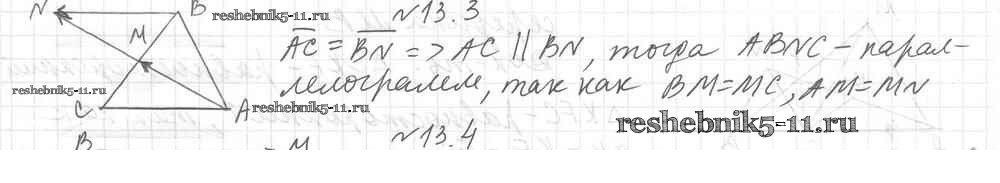 N B reshebnik5-11.ru №13.3
M
AC = BN => AC || BN, тогда ABNC - парал-
лелограмм, так как BM=MC, AM=MN
reshebnik5-11.ru
C A reshebnik5-11.ru
reshebnik5-11.ru
B M №13.4